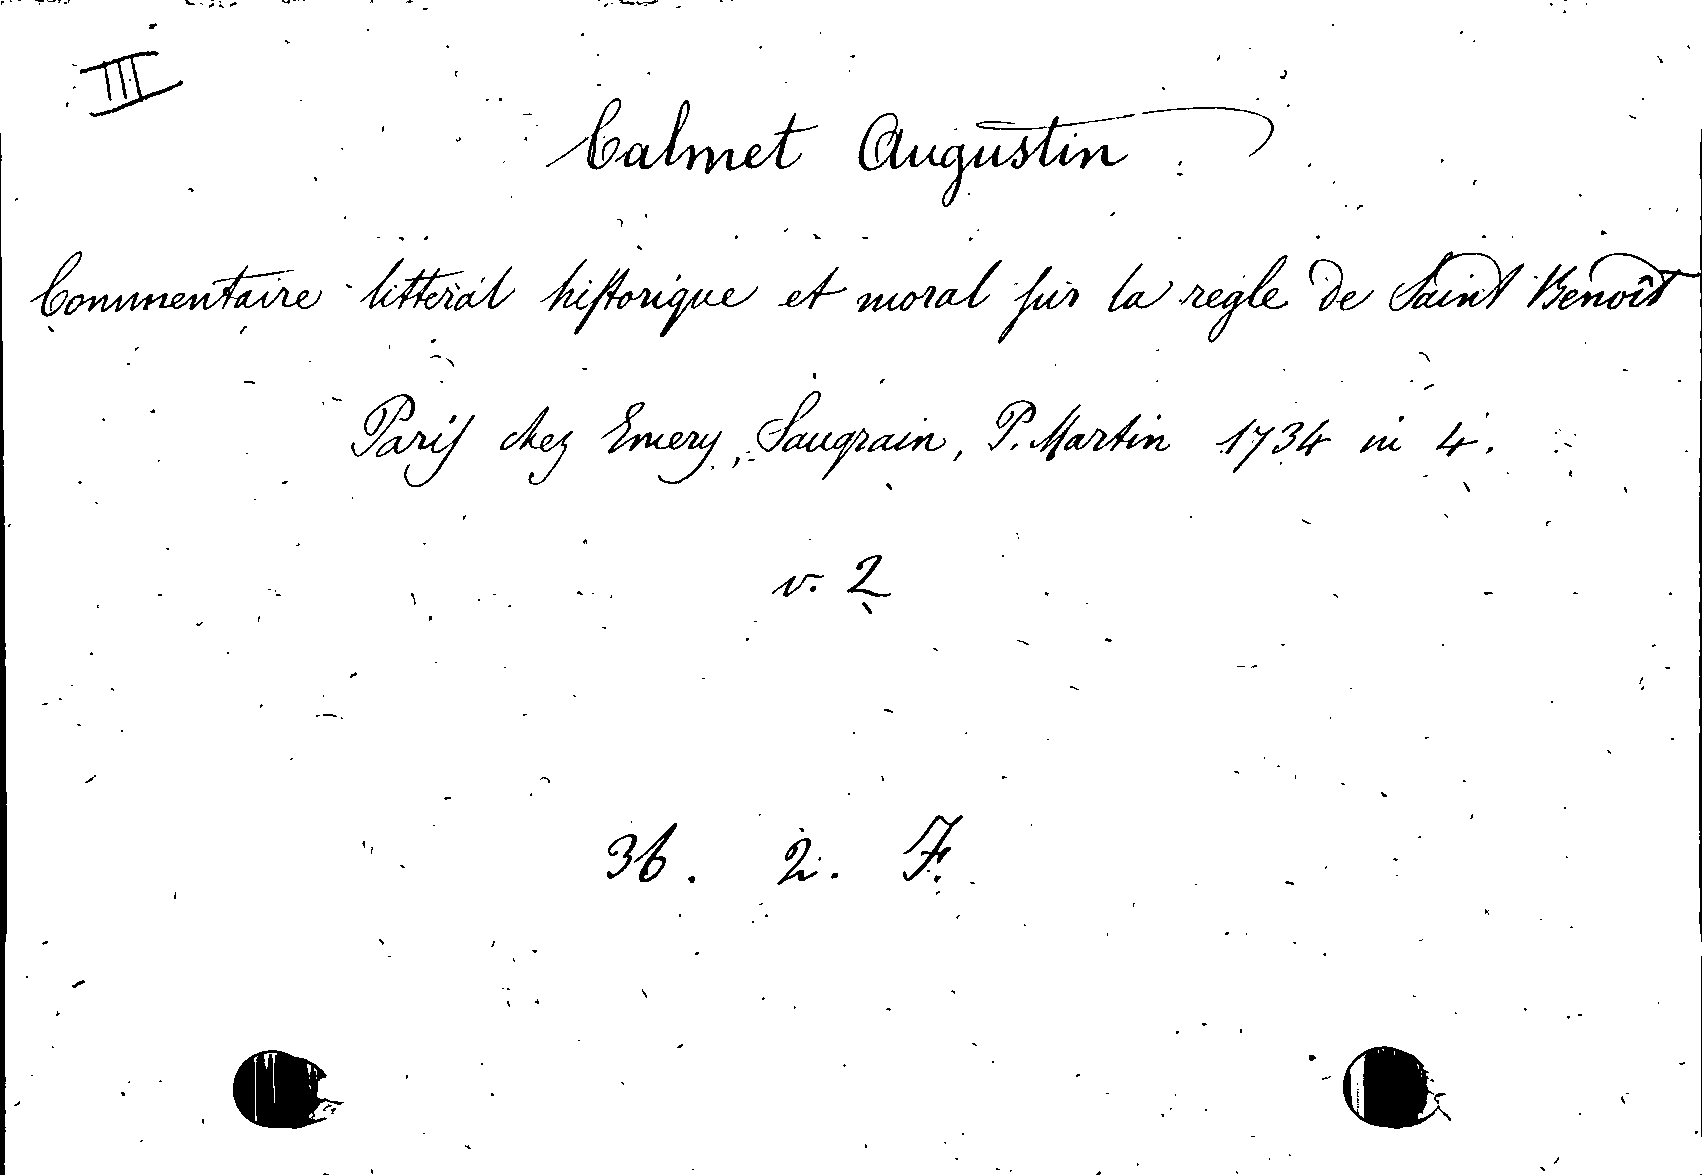 III
Calmet Augustin
Commentaire litteral historique et moral sur la regle de Saint Benoît
Paris chez Emery, Saugrain, P. Martin 1734 in 4.
v. 2
36. 2. F.